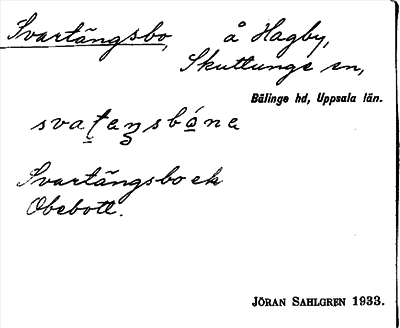 Svartängsbo, å Hagby,
Skuttunge sn,
Bälinge hd, Uppsala län.
Svartängsbo ek
Obebott.
JÖRAN SAHLGREN 1933.